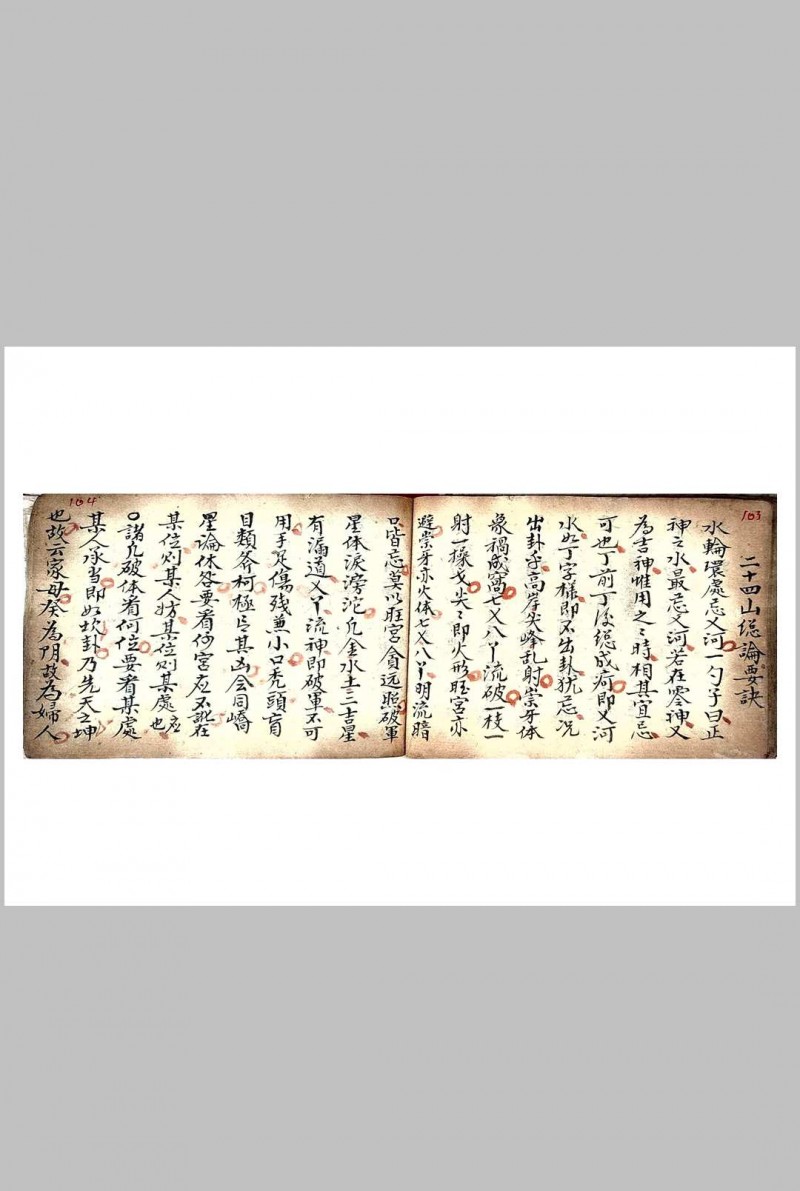 103
二十四山総論要訣
水輪環處忌义河一勺子曰正
神之水最忌义河若在零神又
為吉神惟用之之時相其宜忌
可也丁前丁後総成病即义河
水如丁字樣即不出卦犹忌况
出卦乎高岸尖峰乱射崇牙体
象禍成窩七义八丫流破一枝一
射一椽戈尖尖即火形旺宮亦
避崇牙亦火体七义八丫明流暗
只皆忌莫以旺宮貪远照破軍
星体淚滂沱凢金水土三吉星
有漏道义丫流神即破軍不可
用手足傷残兼小口禿頭盲
目類斧柯極言其凶会同嶠
星論体各要看何宮应不訛在
某位则某人妨某位则某處应也
〇諸凢破体看何位要看某處
某人承当即如坎卦乃先天之坤
也故云家母癸為阴故為婦人
104